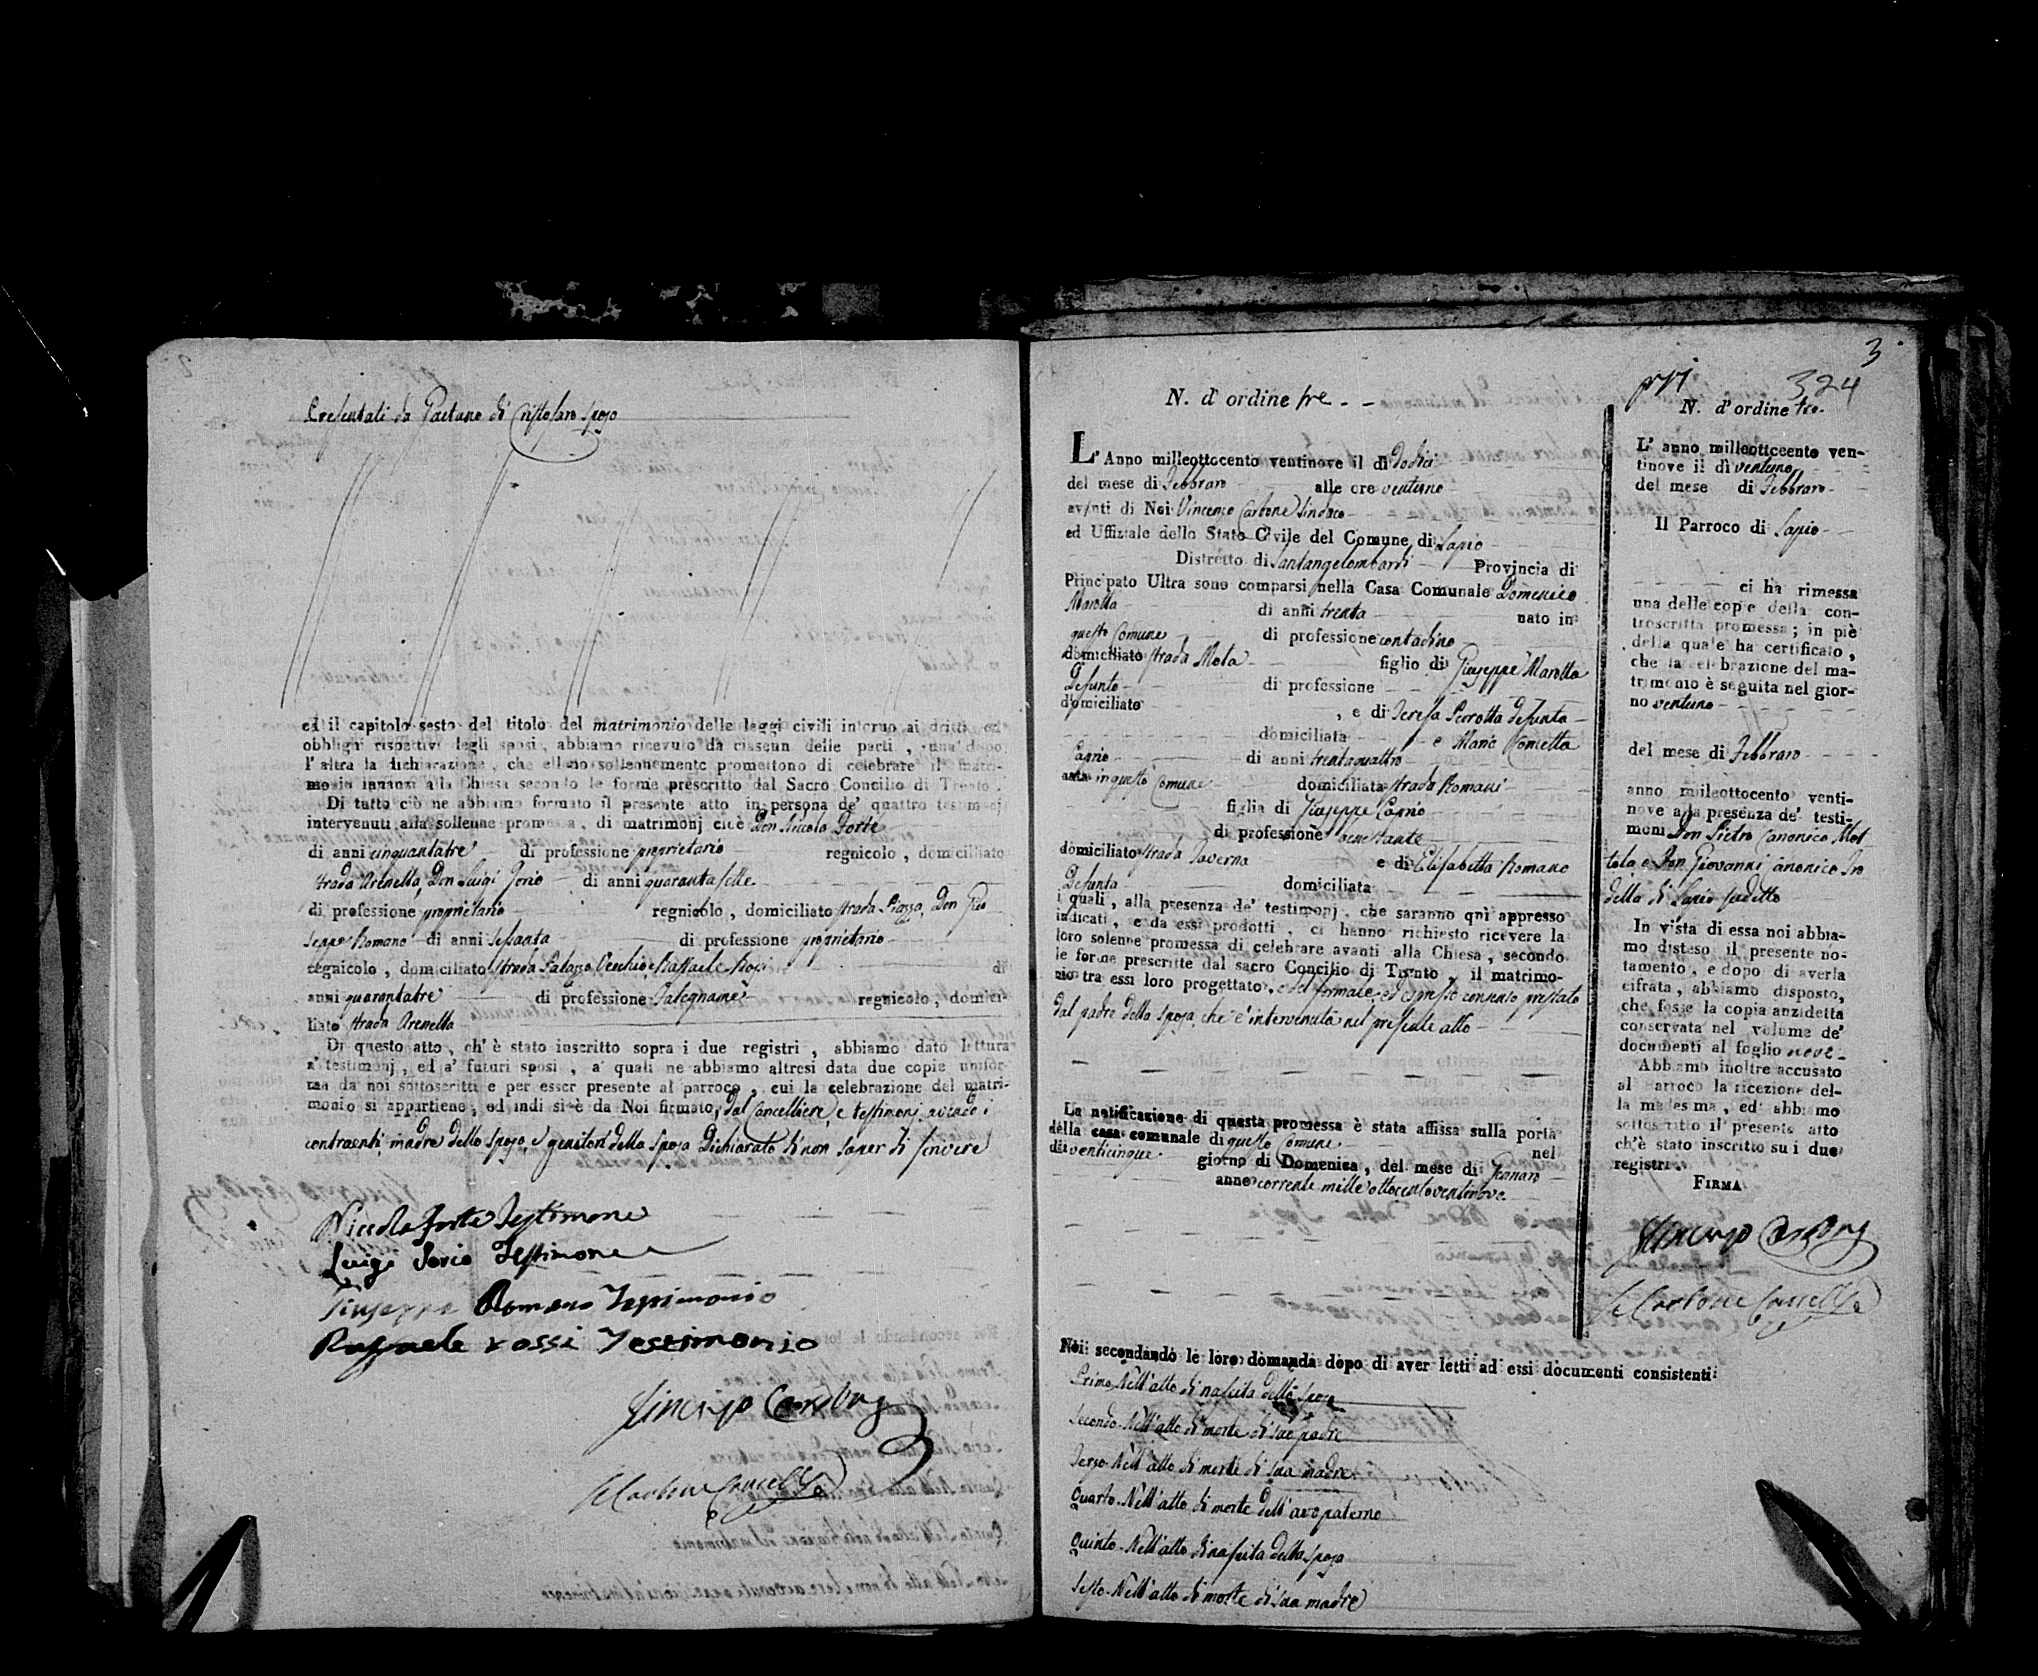 Presentati da Gaetano di Cristofaro sposo
ed il capitolo sesto del titolo del matrimonio delle leggi civili intorno ai dritti, ed
obblighi rispettivi degli sposi, abbiamo ricevuto da ciascun delle parti, una dopo
l'altra la dichiarazione, che elleno sollennemente promettono di celebrare il matri-
monio innanzi alla Chiesa secondo le forme prescritto dal Sacro Concilio di Trento.
Di tutto ciò ne abbiamo formato il presente atto in persona de' quattro testimonj
intervenuti alla sollenne promessa, di matrimonj cioè Don Niccola Forte
di anni cinquantatre di professione proprietario regnicolo, domiciliato
strada Arenella, Don Luigi Iorio di anni quarantasette
di professione proprietario regnicolo, domiciliato strada Piazza, Don Giu
seppe Romano di anni sessanta di professione proprietario
regnicolo, domiciliato strada Palazzo Vecchio, e Raffaele Rossi di
anni quarantatre di professione Falegname regnicolo, domici-
liato strada Arenella
Di questo atto, ch'è stato inscritto sopra i due registri, abbiamo dato lettura
a' testimonj, ed a' futuri sposi, a' quali ne abbiamo altresì data due copie unifor-
me da noi sottoscritti e per esser presente al parroco, cui la celebrazione del matri-
monio si appartiene, ed indi si è da Noi firmato, dal Cancelliere, e testimonj avendo i
contraenti, madre dello sposo, e genitori della sposa dichiarato di non saper di scrivere
Niccola Forte Testimone
Luigi Iorio Testimone
Giuseppe Romano Testimonio
Raffaele rossi Testimonio
Vincenzo Carbone
Carbone Cancelliere
3
N. d'ordine tre
L'Anno milleottocento ventinove il dì dodici
del mese di Febbraro alle ore ventuno
avanti di Noi Vincenzo Carbone Sindaco
ed Uffiziale dello Stato Civile del Comune di Lapio
Distretto di Santangelombardi Provincia di
Principato Ultra sono comparsi nella Casa Comunale Domenico
Marotta di anni trenta nato in
questo Comune di professione contadino
domiciliato strada Mola figlio di Giuseppe Marotta
Defunto di professione
domiciliato , e di Teresa Perrotta defunta
domiciliata e Maria Cometta
Cagno di anni trentaquattro
nata in questo Comune domiciliata strada Romani
figlia di Giuseppe Cagno
di professione benestante
domiciliato strada Taverna e di Elisabetta Romano
Defunta domiciliata
i quali, alla presenza de' testimonj, che saranno quì appresso
indicati, e da essi prodotti, ci hanno richiesto ricevere la
loro solenne promessa di celebrare avanti alla Chiesa, secondo
le forme prescritte dal sacro Concilio di Trento, il matrimo-
nio tra essi loro progettato, e del formale, ed espresso consenso prestato
dal padre della sposa, che è intervenuto nel presente atto
La notificazione di questa promessa è stata affissa sulla porta
della casa comunale di questo Comune nel
dì venticinque giorno di Domenica, del mese di Gennaro
anno corrente mille ottocentoventinove
Noi secondando le loro domanda dopo di aver letti ad essi documenti consistenti
Primo. Nell'atto di nascita dello sposo
Secondo. Nell'atto di morte di suo padre
Terzo. Nell'atto di morte di sua madre
Quarto. Nell'atto di morte dell'avo paterno
Quinto. Nell'atto di nascita della sposa
Sesto. Nell'atto di morte di sua madre
324
N. d'ordine tre
L'anno milleottocento ven-
tinove il dì ventuno
del mese di Febbraro
Il Parroco di Lapio
ci ha rimessa
una delle copie della con-
troscritta promessa; in piè
della quale ha certificato,
che la celebrazione del ma-
trimonio è seguita nel gior-
no ventuno
del mese di Febbraro
anno milleottocento venti-
nove alla presenza de' testi-
moni Don Pietro Canonico Mot
tola, e Don Giovanni Canonico Tro
della di Lapio sudetto
In vista di essa noi abbia-
mo disteso il presente no-
tamento, e dopo di averla
cifrata, abbiamo disposto,
che fosse la copia anzidetta
conservata nel volume de'
documenti al foglio nove
Abbiamo inoltre accusato
al Parroco la ricezione del-
la medesima, ed abbiamo
sottoscritto il presente atto
ch'è stato inscritto su i due
registri.
FIRMA
Vincenzo Carbone
Carbone Cancelliere